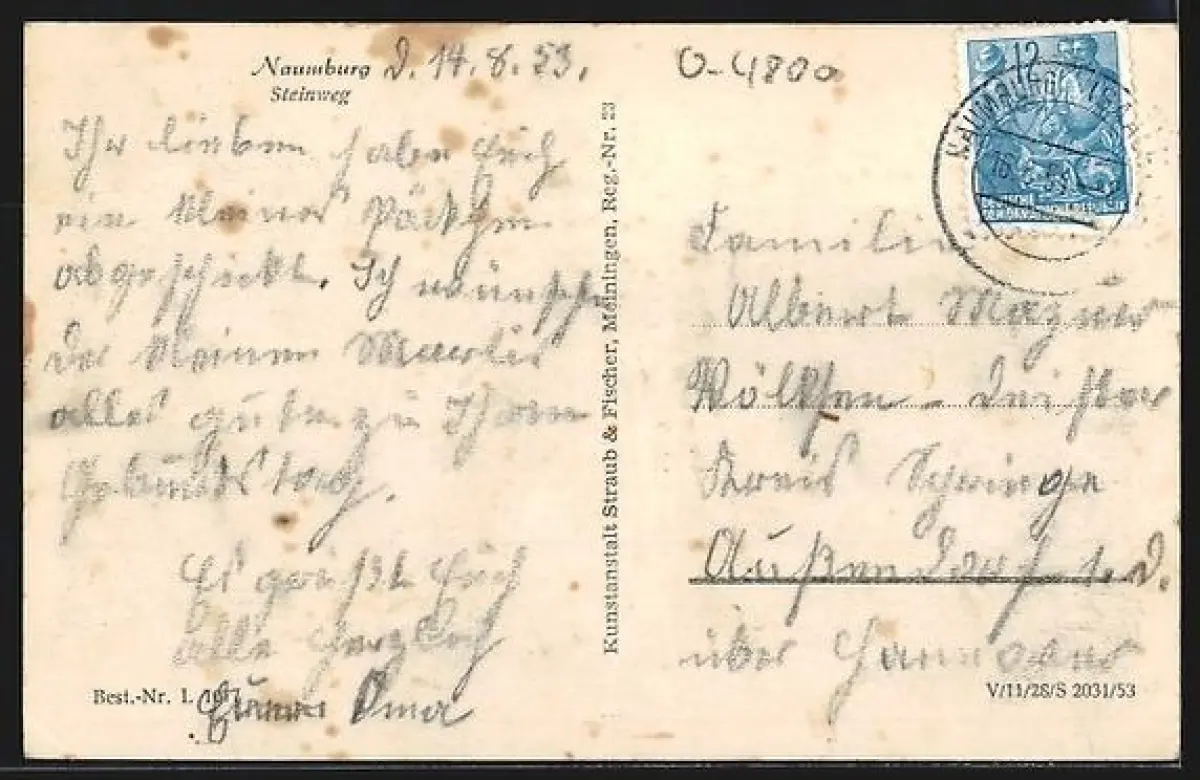 Naumburg d. 14.8.53.
Steinweg
Ihr lieben habe Euch
ein kleines Päckchen
abgeschickt. Ich wünsche
der kleinen
alles gute zu Ihrem
Geburtstag.
Es grüßt Euch
alle herzlich
Oma
Best.-Nr. 1.
Kunstanstalt Straub & Fischer, Meiningen, Reg.-Nr. 23
0-4800
12
NAUMBURG
DEUTSCHE
DEMOKRATISCHE REPUBLIK
Familie
Albert
Völksen - Deister
Kreis Springe
Außendorf 1. D.
über Hannover
V/11/28/S 2031/53